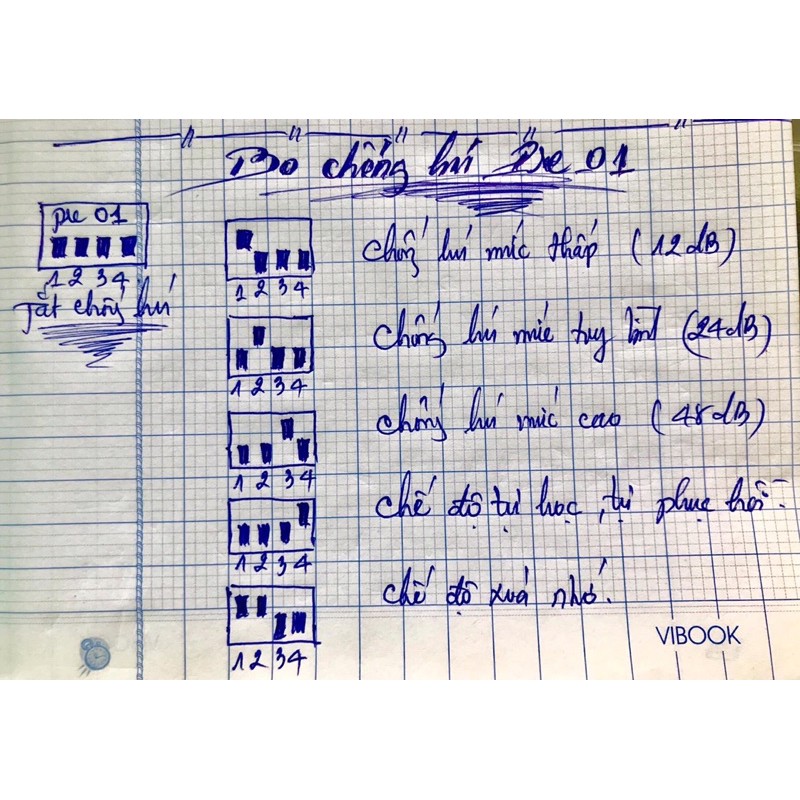 Bo chống hú Pre 01
pre 01
1 2 3 4
Tắt chống hú
1 2 3 4
chống hú mức thấp (12dB)
1 2 3 4
chống hú mức tuy (24dB)
1 2 3 4
chống hú mức cao (48dB)
1 2 3 4
chế độ tự học, tự phục hồi.
1 2 3 4
chế độ xoá nhớ.
VIBOOK